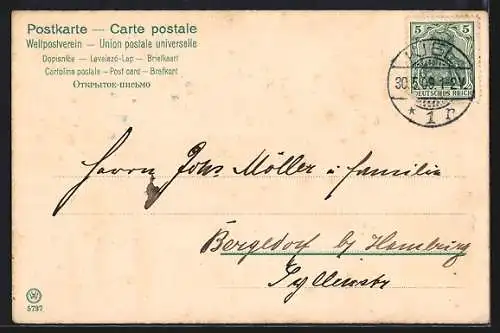 Postkarte — Carte postale
Weltpostverein — Union postale universelle
Dopisnice — Levelező-Lap — Briefkaart
Cartolina postale — Post card — Brefkort
Открытое письмо
5 5
DEUTSCHES REICH
KIEL
30.5.09.1-2V.
* 1 r
Herrn Johs Möller u Familie
Bergedorf b/ Hamburg
5797